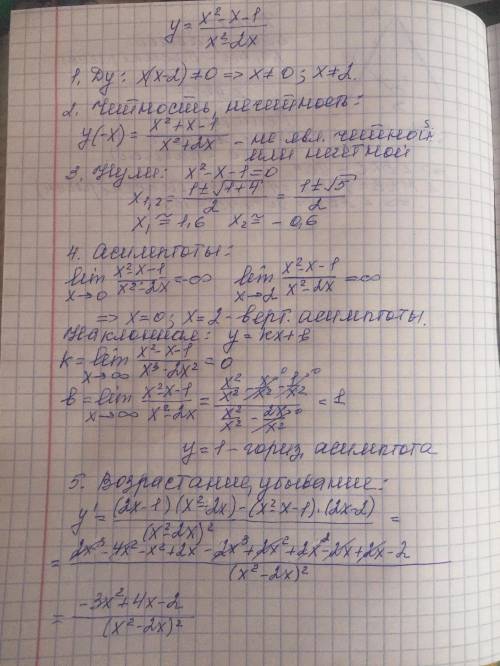 y = (x²-x-1)/(x²-2x)
1. Ду: x(x-2)≠0 => x≠0; x≠2.
2. Читность, нечитность:
y(-x) = (x²+x-1)/(x²+2x) - не явл. читной или нечтной
3. Нули: x²-x-1=0
x₁,₂ = (1±√1+4)/2 = (1±√5)/2
x₁ ≅ 1,6 x₂ ≅ -0,6
4. Асимптоты:
lim x→0 (x²-x-1)/(x²-2x) = -∞ lim x→2 (x²-x-1)/(x²-2x) = ∞
=> x=0; x=2 - верт. асимптоты.
Наклонная: y = kx+b
k = lim x→∞ (x²-x-1)/(x³-2x²) = 0
b = lim x→∞ (x²-x-1)/(x²-2x) = (x²/x² - x/x² - 1/x²)/(x²/x² - 2x/x²) = 1
y=1 - гориз. асимптота
5. Возрастание, убывание:
y' = ((2x-1)(x²-2x)-(x²-x-1)·(2x-2))/(x²-2x)² =
= (2x³-4x²-x²+2x-2x³+2x²+2x²-2x+2x-2)/(x²-2x)²
= (-3x²+4x-2)/(x²-2x)²